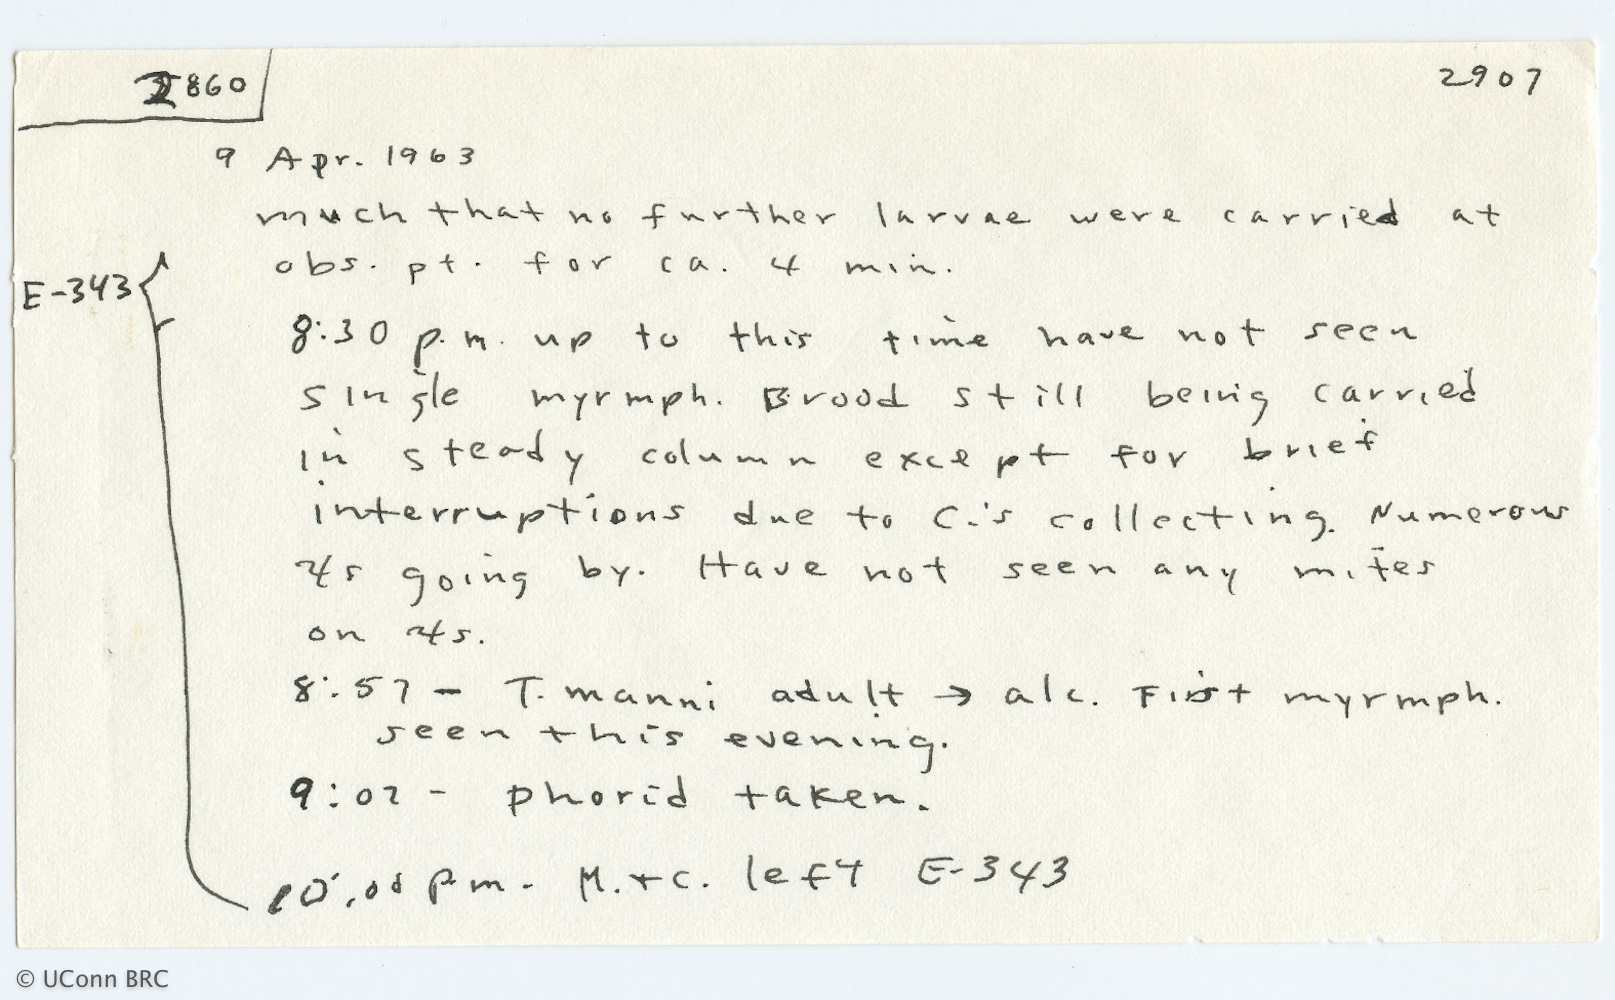 860
2907
9 Apr. 1963
much that no further larvae were carried at
obs. pt. for ca. 4 min.
E-343
8:30 p.m. up to this time have not seen
single myrmph. Brood still being carried
in steady column except for brief
interruptions due to C.'s collecting. Numerous
going by. Have not seen any mites
on
8:57 - T. manni adult → alc. First myrmph.
seen this evening.
9:02 - phorid taken.
10:00 p.m. - M. + C. left E-343
© UConn BRC